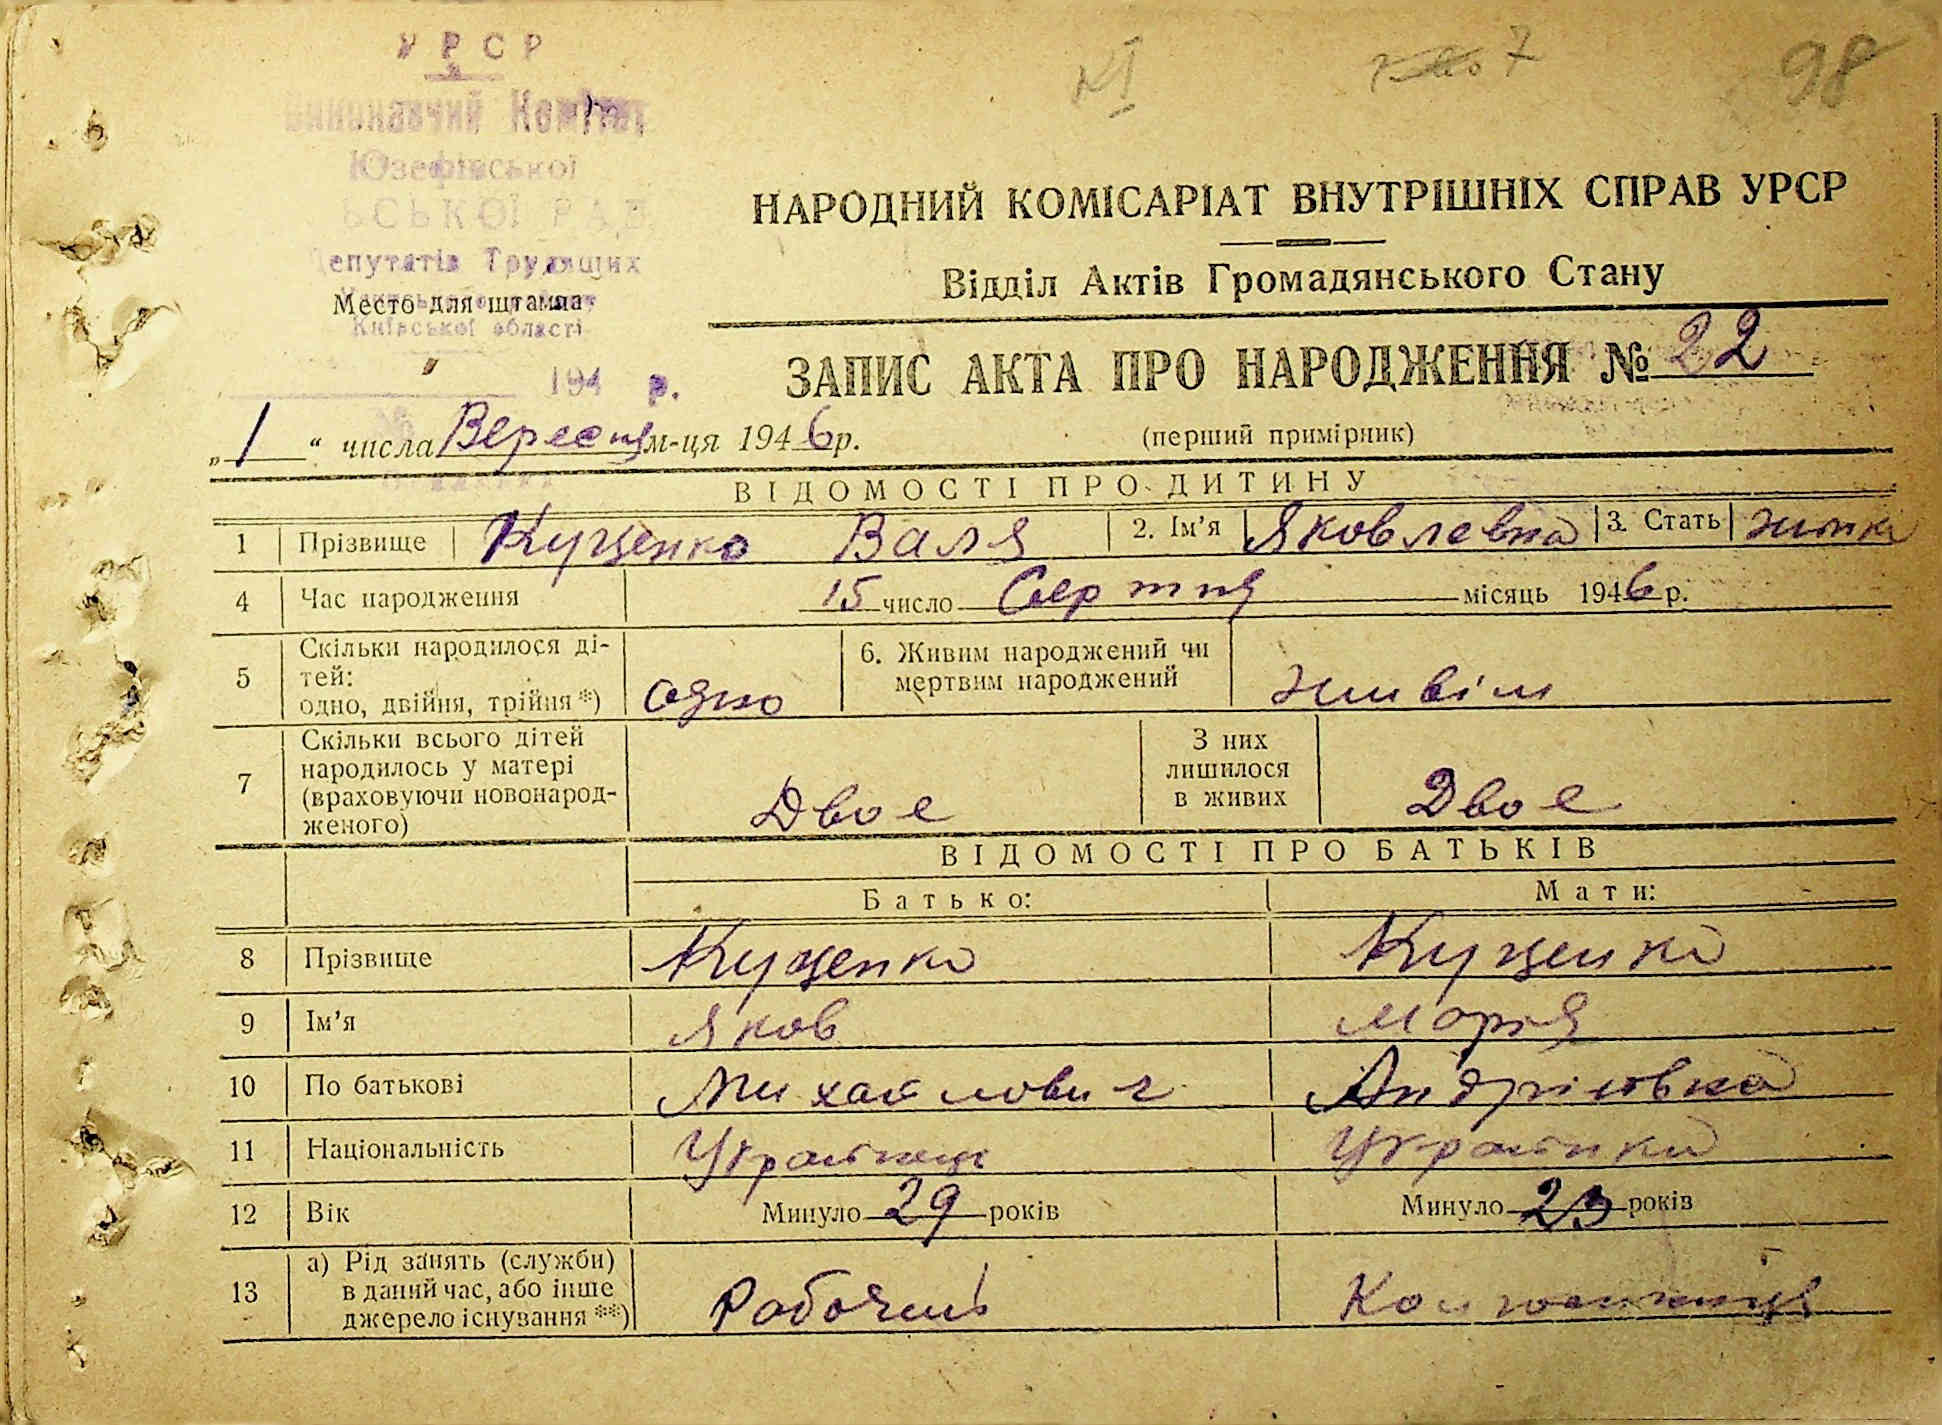 У Р С Р
Виконавчий Комітет
Юзефівської
СЬКОЇ РАД
Депутатів Трудящих
Место для штампа
Київської області
194 р.
КІ
7
98
НАРОДНИЙ КОМІСАРІАТ ВНУТРІШНІХ СПРАВ УРСР
Відділ Актів Громадянського Стану
ЗАПИС АКТА ПРО НАРОДЖЕННЯ № 22
„ 1 “ числа Вересня м-ця 1946 р.
(перший примірник)
ВІДОМОСТІ ПРО ДИТИНУ
1 Прізвище Куценко Валя 2. Ім’я Яковлевна 3. Стать жінка
4 Час народження 15 число Серпня місяць 1946 р.
5 Скільки народилося ді-
тей:
одно, двійня, трійня *) одно
6. Живим народжений чи
мертвим народжений живім
7 Скільки всього дітей
народилось у матері
(враховуючи новонарод-
женого) Двое
З них
лишилося
в живих Двое
ВІДОМОСТІ ПРО БАТЬКІВ
Батько: Мати:
8 Прізвище Куценко Куценко
9 Ім’я Яков Марія
10 По батькові Михайлович Андріївна
11 Національність Українец Українка
12 Вік Минуло 29 років Минуло 23 років
13 а) Рід занять (служби)
в даний час, або інше
джерело існування **) Рабочий Колгоспниця